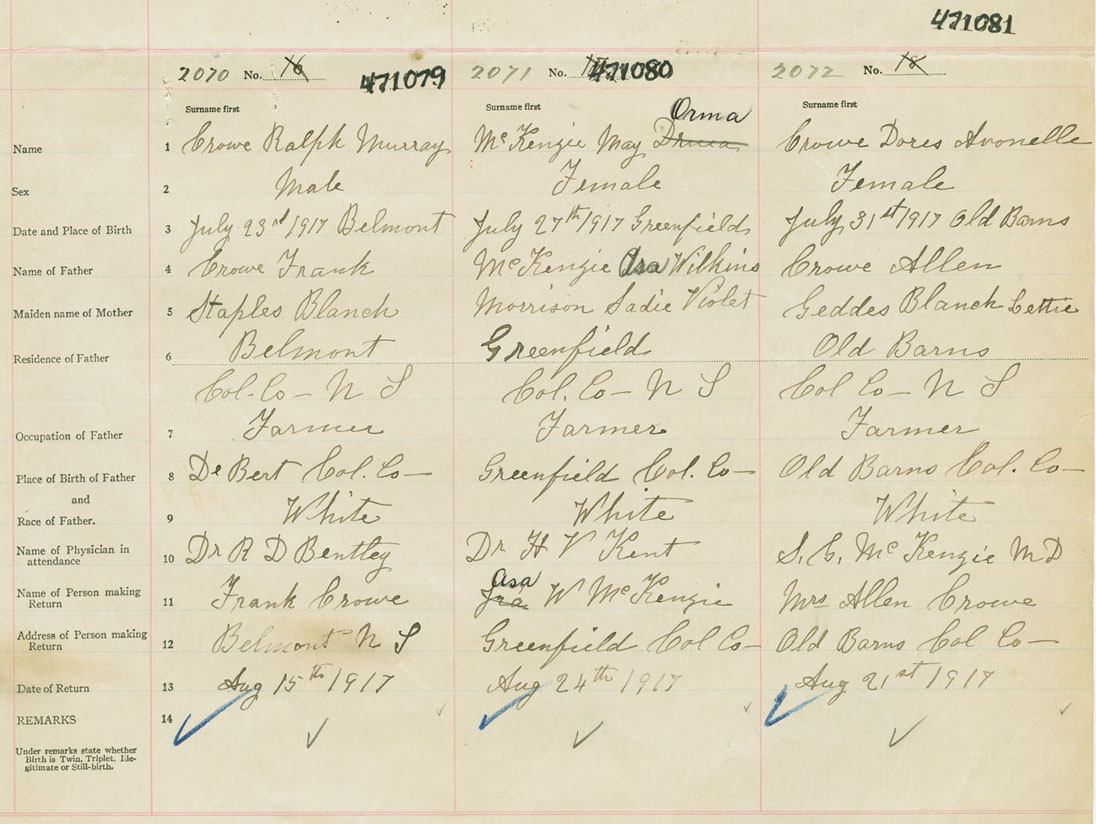 471081
2070 No. 16 471079 2071 No. 471080 2072 No. 18
Surname first Surname first Surname first
Orma
Name 1 Crowe Ralph Murray McKenzie May Druca Crowe Dores Avonelle
Sex 2 Male Female Female
Date and Place of Birth 3 July 23rd 1917 Belmont July 27th 1917 Greenfield July 31st 1917 Old Barns
Name of Father 4 Crowe Frank McKenzie Asa Wilkins Crowe Allen
Maiden name of Mother 5 Staples Blanch Morrison Sadie Violet Geddes Blanch Lettie
Residence of Father 6 Belmont Greenfield Old Barns
Col. Co - N S Col. Co - N S Col Co - N S
Occupation of Father 7 Farmer Farmer Farmer
Place of Birth of Father 8 De Bert Col. Co - Greenfield Col. Co - Old Barns Col. Co -
and
Race of Father. 9 White White White
Name of Physician in
attendance 10 Dr R D Bentley Dr H V Kent S. G. McKenzie M D
Asa
Name of Person making
Return 11 Frank Crowe Ira W McKenzie Mrs Allen Crowe
Address of Person making
Return 12 Belmont N S Greenfield Col Co - Old Barns Col Co -
Date of Return 13 Aug 15th 1917 Aug 24th 1917 Aug 21st 1917
REMARKS 14
Under remarks state whether
Birth is Twin, Triplet, Ille-
gitimate or Still-birth.